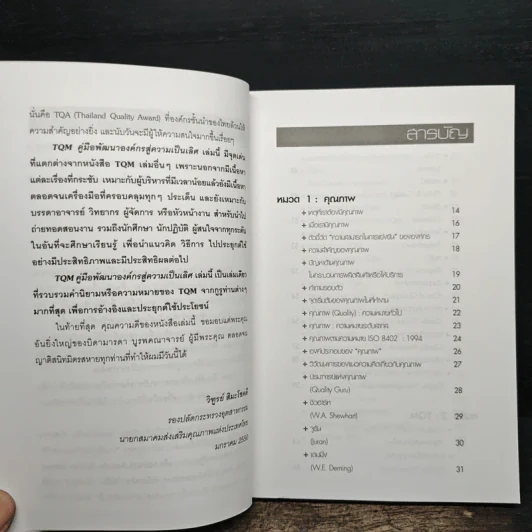 นั่นคือ TQA (Thailand Quality Award) ที่องค์กรชั้นนำของไทยล้วนให้
ความสำคัญอย่างยิ่ง และนับวันจะมีผู้ให้ความสนใจมากขึ้นเรื่อยๆ
TQM คู่มือพัฒนาองค์กรสู่ความเป็นเลิศ เล่มนี้ มีจุดเด่น
ที่แตกต่างจากหนังสือ TQM เล่มอื่นๆ เพราะนอกจากมีเนื้อหา
แต่ละเรื่องที่กระชับ เหมาะกับผู้บริหารที่มีเวลาน้อยแล้วยังมีเนื้อหา
ตลอดจนเครื่องมือที่ครอบคลุมทุกๆ ประเด็น และยังเหมาะกับ
บรรดาอาจารย์ วิทยากร ผู้จัดการ หรือหัวหน้างาน สำหรับนำไป
ถ่ายทอดสอนงาน รวมถึงนักศึกษา นักปฏิบัติ ผู้สนใจจากทุกระดับ
ในอันที่จะศึกษาเรียนรู้ เพื่อนำแนวคิด วิธีการ ไปประยุกต์ใช้
อย่างมีประสิทธิภาพและมีประสิทธิผลต่อไป
TQM คู่มือพัฒนาองค์กรสู่ความเป็นเลิศ เล่มนี้ เป็นเล่มเดียว
ที่รวบรวมคำนิยามหรือความหมายของ TQM จากกูรูท่านต่างๆ
มากที่สุด เพื่อการอ้างอิงและประยุกต์ใช้ประโยชน์
ในท้ายที่สุด คุณความดีของหนังสือเล่มนี้ ขอมอบแด่พระคุณ
อันยิ่งใหญ่ของบิดามารดา บูรพคณาจารย์ ผู้มีพระคุณ ตลอดจน
ญาติสนิทมิตรสหายทุกท่านที่ทำให้ผมมีวันนี้ได้
วิฑูรย์ สิมะโชคดี
รองปลัดกระทรวงอุตสาหกรรม
นายกสมาคมส่งเสริมคุณภาพแห่งประเทศไทย
มกราคม 2550
สารบัญ
หมวด 1 : คุณภาพ
+ เหตุที่ต้องมีคุณภาพ 14
+ เมื่อเรามีคุณภาพ 16
+ ตัวชี้วัด "ความสามารถในการแข่งขัน" ขององค์กร 17
+ ความสำคัญของคุณภาพ 18
+ ปัญหาด้านคุณภาพ
ในกระบวนการผลิตสินค้าหรือให้บริการ 19
+ 20
+ จุดเริ่มต้นของคุณภาพในที่ทำงาน 21
+ คุณภาพ (Quality) : ความหมายทั่วไป 22
+ คุณภาพ : ความหมายระดับสากล 23
+ คุณภาพตามความหมาย ISO 8402 : 1994 24
+ องค์ประกอบของ "คุณภาพ" 26
+ วิวัฒนาการของแนวความคิดเกี่ยวกับคุณภาพ 27
+ ปรมาจารย์แห่งคุณภาพ
(Quality Guru) 28
+ ชิวฮาร์ท
(W.A. Shewhart) 29
+ จูรัน
(Juran) 30
+ เดมมิ่ง
(W.E. Deming) 31